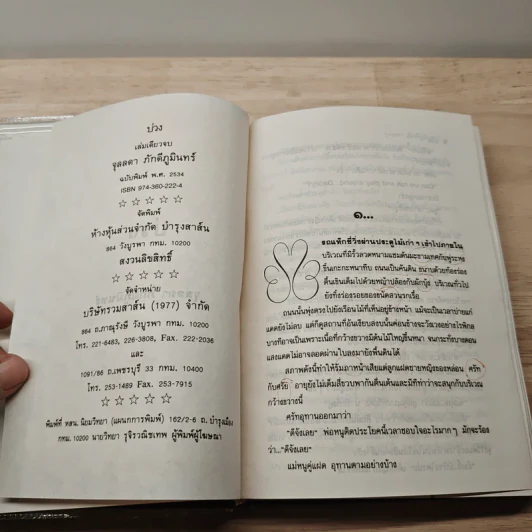 บ่วง
เล่มเดียวจบ
จุลลดา ภักดีภูมินทร์
ฉบับพิมพ์ พ.ศ. 2534
ISBN 974-360-222-4
☆ ☆ ☆ ☆ ☆
จัดพิมพ์
ห้างหุ้นส่วนจำกัด บำรุงสาส์น
864 วังบูรพา กทม. 10200
สงวนลิขสิทธิ์
☆ ☆ ☆ ☆ ☆
จัดจำหน่าย
บริษัทรวมสาส์น (1977) จำกัด
864 ถ.ภาณุรังษี วังบูรพา กทม. 10200
โทร. 221-6483, 226-3808, Fax. 222-2036
และ
1091/86 ถ.เพชรบุรี 33 กทม. 10400
โทร. 253-1489 Fax. 253-7915
☆ ☆ ☆ ☆ ☆
พิมพ์ที่ หสน. นิยมวิทยา (แผนกการพิมพ์) 162/2-6 ถ. บำรุงเมือง
กทม. 10200 นายวิทยา รุจิรวณิชเทพ ผู้พิมพ์ผู้โฆษณา
๑...
รถแท็กซี่วิ่งผ่านประตูไม้เก่า ๆ เข้าไปภายใน
บริเวณที่มีรั้วลวดหนามแซมต้นมะขามเทศกับพู่ระหง
ขึ้นเกะกะหนาทึบ ถนนเป็นคันดิน ขนาบด้วยท้องร่อง
ตื้นเขินเต็มไปด้วยหญ้าปล้องกับผักบุ้ง บริเวณทั่วไป
ยังทิ้งร่องรอยของขนัดสวนรกเรื้อ
ถนนนั้นพุ่งตรงไปยังเรือนไม้ที่เห็นอยู่ข้างหน้า แม้จะเป็นเวลาบ่ายแก่
แดดยังไม่ลบ แต่ก็ดูสถานที่อันเงียบสงบนั้นค่อนข้างจะวังเวงอย่างไรพิกล
บางทีอาจเป็นเพราะเนื้อที่กว้างขวางมีต้นไม้ใหญ่ขึ้นหนา จนกระทั่งบางตอน
แสงแดดไม่อาจลอดผ่านใบลงมายังพื้นดินได้
สภาพดังนี้ทำให้ริมกาหน้าเสียแต่ลูกแฝดชายหญิงของหล่อน ศรัท
กับศรัย อายุยังไม่เต็มสี่ขวบพากันตื่นเต้นและมีทีท่าว่าจะสนุกกับบริเวณ
กว้างขวางนี้
ศรัทอุทานออกมาว่า
“ดีจังเลย” พ่อหนูติดประโยคนี้เวลาชอบใจอะไรมาก ๆ มักจะร้อง
ว่า...“ดีจังเลย”
แม่หนูคู่แฝด อุทานตามอย่างบ้าง